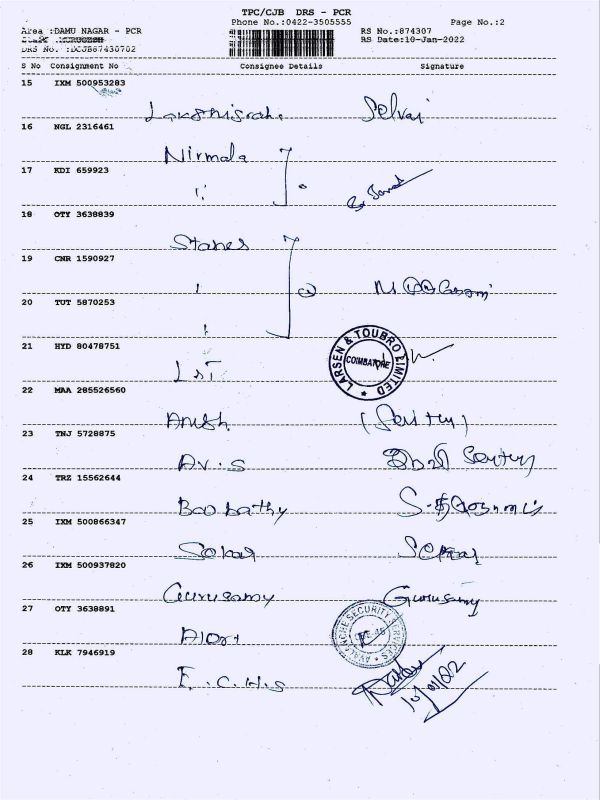 TPC/CJB DRS - PCR
Phone No.:0422-3505555 Page No.:2
Area :DAMU NAGAR - PCR RS No.:874307
RS Date:10-Jan-2022
DRS No. :DCJB87430702
S No Consignment No Consignee Details Signature
15 IXM 500953283
Selvai
16 NGL 2316461
Nirmala
17 KDI 659923
18 OTY 3638839
Stanes
19 CNR 1590927
20 TUT 5870253
21 HYD 80478751
L&T LARSEN & TOUBRO LIMITED COIMBATORE
22 MAA 285526560
Anish
23 TNJ 5728875
A.V.S
24 TRZ 15562644
Boobathy
25 IXM 500866347
Sekar
26 IXM 500937820
Gurusamy Gurusamy
27 OTY 3638891
Alert AVALANCHE SECURITY SERVICES
28 KLK 7946919
E.C.H.S
10/01/22